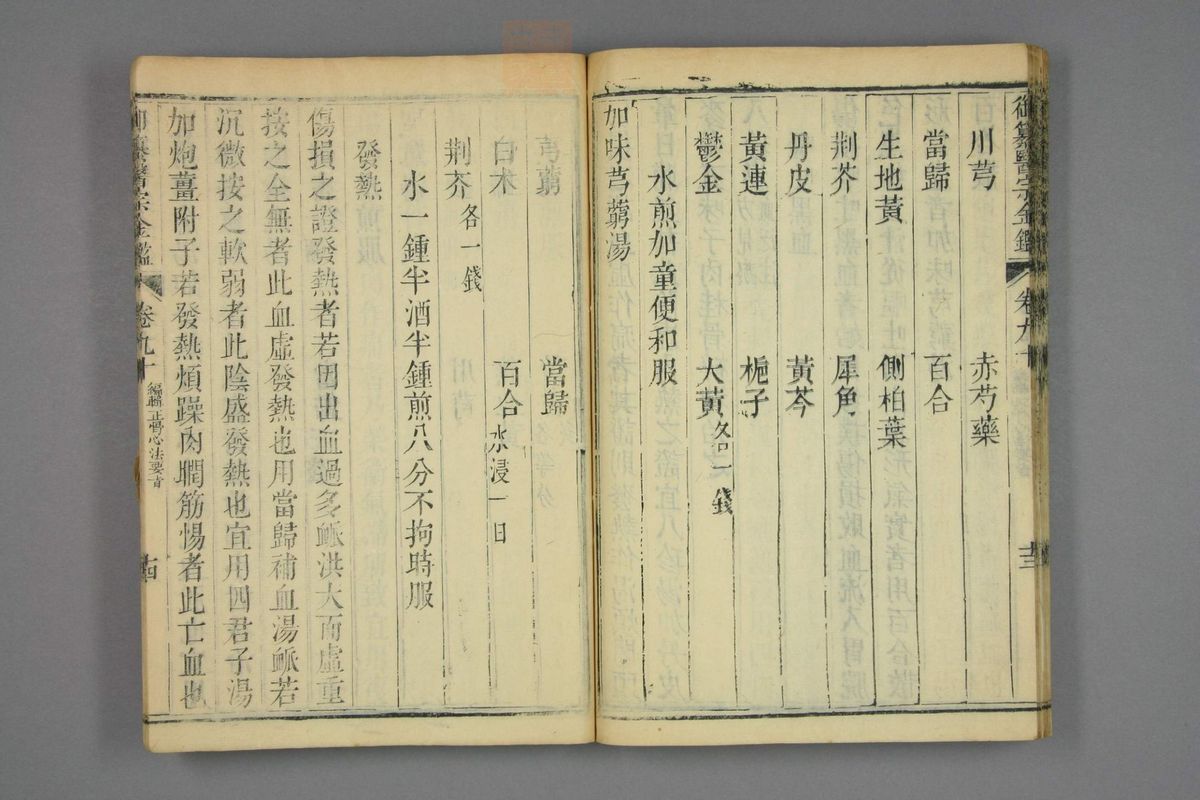 御纂醫宗金鑑 卷九十
川芎 赤芍藥
當歸 百合
生地黃 側柏葉
荆芥 犀角
丹皮 黃芩
黃連 梔子
鬱金 大黃各一錢
水煎加童便和服
加味芎藭湯
芎藭 當歸
白术 百合水浸一日
荆芥各一錢
水一鍾半酒半鍾煎八分不拘時服
發熱
傷損之證發熱者若因出血過多脈洪大而虛重
按之全無者此血虛發熱也用當歸補血湯脈若
沉微按之軟弱者此陰盛發熱也宜用四君子湯
加炮薑附子若發熱煩躁肉瞤筋惕者此亡血也
御纂醫宗金鑑 卷九十 編輯正骨心法要旨 十四